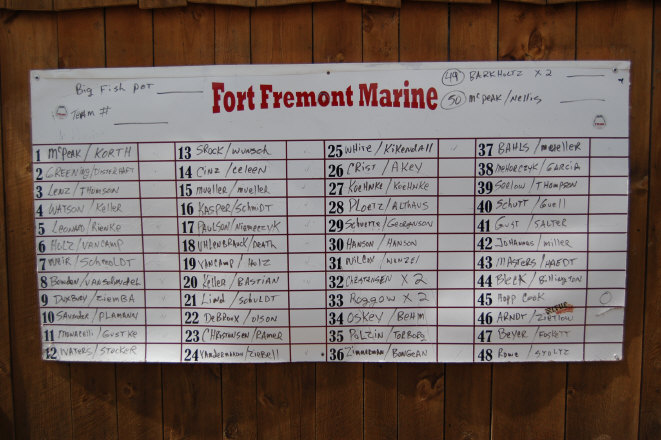 Big Fish Pot
Team #
Fort Fremont Marine
49 BARKHOLTZ X 2
50 McPeak/Nellis
1 McPeak/KORTH
2 GREENING/
3 LENZ/THOMSON
4 WATSON/Keller
5 Leonard/Rienke
6 HOLZ/VANCAMP
7 Weir/Schmoldt
8 Bowden/
9 Duxbury/ZIEMBA
10 Saunder/PLAMANN
11 /GUSTKE
12 WATERS/STOCKER
13 SROCK/WUNSCH
14 Cinz/Celeen
15 mueller/mueller
16 KASPER/SCHMIDT
17 PAULSON/NIEMCZYK
18 UHLENBRAUCK/DEATH
19 VANCAMP/HOLZ
20 Keller/BASTIAN
21 Lind/SCHULDT
22 DeBroux/OLSON
23 CHRISTENSEN/RAMER
24 /ZIEBELL
25 WHITE/KIKENDALL
26 CRIST/AKEY
27 KOEHNKE/KOEHNKE
28 PLOETZ/ALTHAUS
29 Schuette/GEORGENSON
30 HANSON/HANSON
31 WILCOX/WENZEL
32 CHRISTENSEN X 2
33 Roggow X 2
34 OSKEY/BOHM
35 POLZIN/TORBORG
36 Zimmerman/BONGEAN
37 BAHLS/mueller
38 /GARCIA
39 SORLOW/THOMPSON
40 SCHUTT/Guell
41 GUST/SALTER
42 JOHANNES/miller
43 MASTERS/HAEDT
44 BECK/Billington
45 HOPP COOK O
46 ARNDT/ZIETLOW
47 Beyer/FOSKETT
48 Rowe/STOLTZ